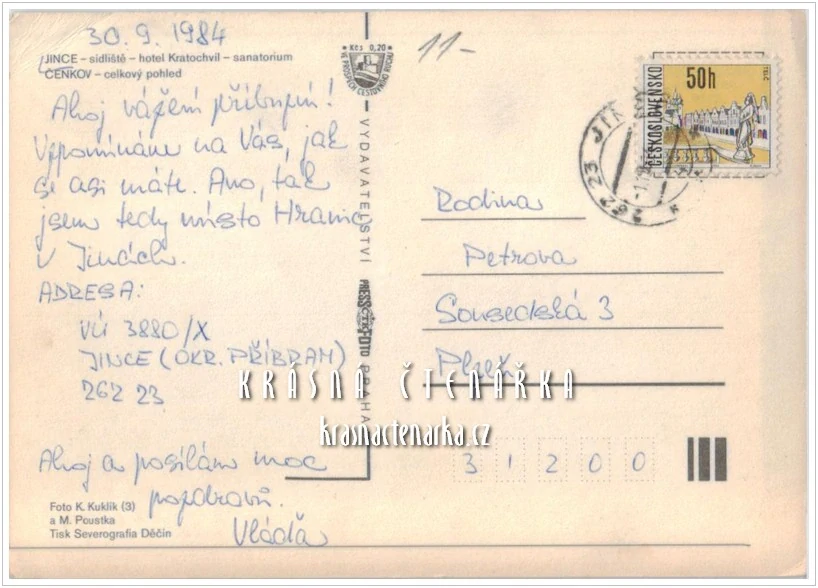 30.9.1984
JINCE – sidliště – hotel Kratochvíl – sanatorium
ČENKOV – celkový pohled
Ahoj vážení příbuzní!
Vzpomínáme na Vás, jak
se asi máte. Ano, tak
jsem tedy místo Hranic
v Jincích.
ADRESA:
VÚ 3880/X
JINCE (OKR. PŘÍBRAM)
262 23
Ahoj a posílám moc
pozdravů.
Vláďa
Foto K. Kuklík (3)
a M. Poustka
Tisk Severografia Děčín
Kčs 0,20
VE PROSPĚCH CESTOVNÍHO RUCHU
VYDAVATELSTVÍ
PRESSFOTO
ČTK
PRAHA
11-
ČESKOSLOVENSKO
50h
TELČ
262 23 JIN
Rodina
Petrova
Sousedská 3
Plzeň
31200
KRÁSNÁ ČTENÁŘKA
krasnactenarka.cz